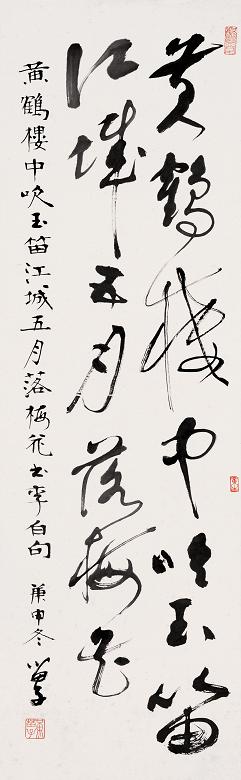 黄鹤楼中吹玉笛
江城五月落梅花
黄鹤楼中吹玉笛江城五月落梅花书李白句
庚申冬